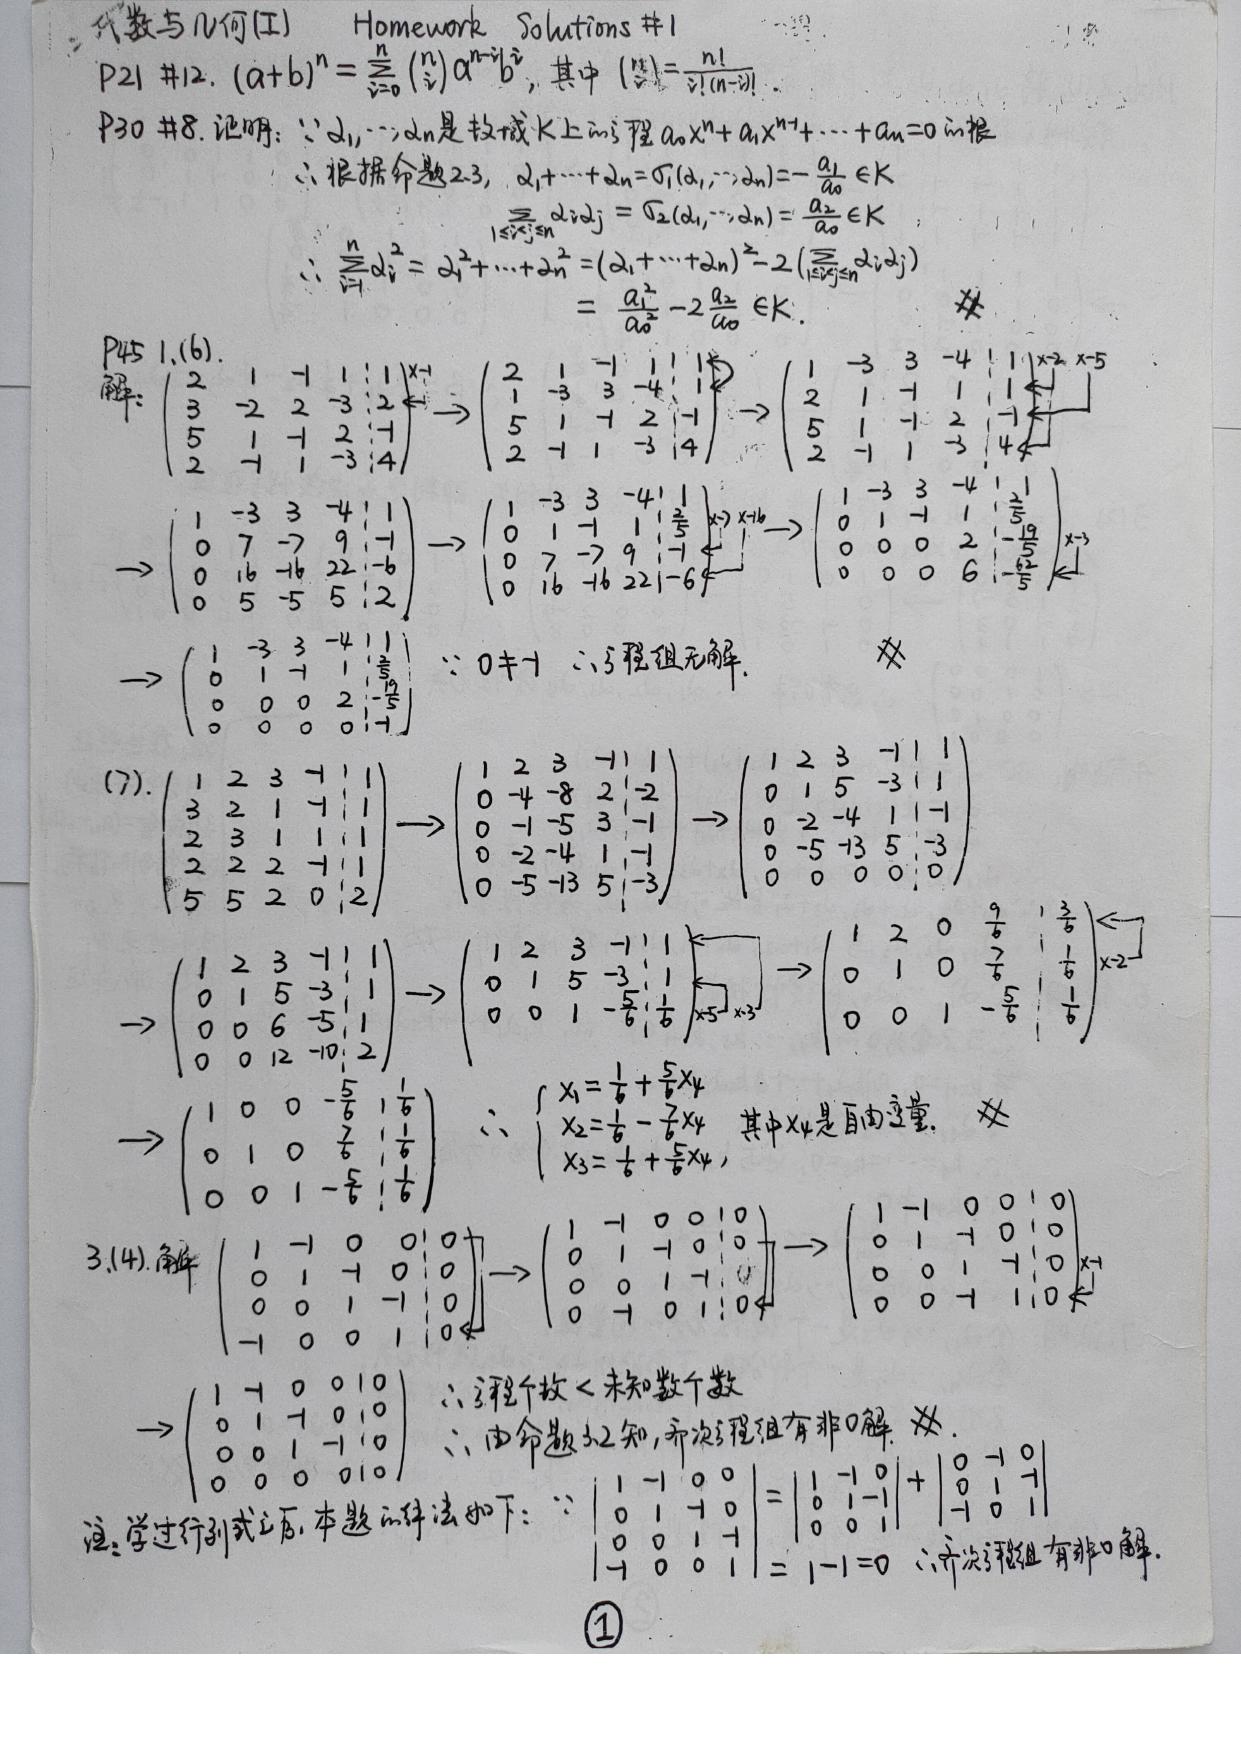 代数与几何(I) Homework Solutions #1
P21 #12. (a+b)^n = ∑_{i=0}^{n} (n i) a^{n-i} b^i, 其中 (n i) = n!/(i!(n-i)!).
P30 #8. 证明: ∵ α₁,…,αₙ是数域K上的方程 a₀xⁿ+a₁xⁿ⁻¹+…+aₙ=0 的根
∴ 根据命题2.3, α₁+…+αₙ=σ₁(α₁,…,αₙ)=-a₁/a₀ ∈K
∑_{1≤i<j≤n} αᵢαⱼ = σ₂(α₁,…,αₙ) = a₂/a₀ ∈K
∴ ∑_{i=1}^{n} αᵢ² = α₁²+…+αₙ² = (α₁+…+αₙ)² - 2(∑_{1≤i<j≤n} αᵢαⱼ)
= a₁²/a₀² - 2 a₂/a₀ ∈K. #
P45 1.(6).
解: (2 1 -1 1 ¦ 1; 3 -2 2 -3 ¦ 2; 5 1 -1 2 ¦ -1; 2 -1 1 -3 ¦ 4) ×-1 → (2 1 -1 1 ¦ 1; 1 -3 3 -4 ¦ 1; 5 1 -1 2 ¦ -1; 2 -1 1 -3 ¦ 4) → (1 -3 3 -4 ¦ 1; 2 1 -1 1 ¦ 1; 5 1 -1 2 ¦ -1; 2 -1 1 -3 ¦ 4) ×-2 ×-5
→ (1 -3 3 -4 ¦ 1; 0 7 -7 9 ¦ -1; 0 16 -16 22 ¦ -6; 0 5 -5 5 ¦ 2) → (1 -3 3 -4 ¦ 1; 0 1 -1 1 ¦ 2/5; 0 7 -7 9 ¦ -1; 0 16 -16 22 ¦ -6) ×-7 ×-16 → (1 -3 3 -4 ¦ 1; 0 1 -1 1 ¦ 2/5; 0 0 0 2 ¦ -19/5; 0 0 0 6 ¦ -62/5) ×-3
→ (1 -3 3 -4 ¦ 1; 0 1 -1 1 ¦ 2/5; 0 0 0 2 ¦ -19/5; 0 0 0 0 ¦ -1) ∵ 0≠-1 ∴ 方程组无解. #
(7). (1 2 3 -1 ¦ 1; 3 2 1 -1 ¦ 1; 2 3 1 1 ¦ 1; 2 2 2 -1 ¦ 1; 5 5 2 0 ¦ 2) → (1 2 3 -1 ¦ 1; 0 -4 -8 2 ¦ -2; 0 -1 -5 3 ¦ -1; 0 -2 -4 1 ¦ -1; 0 -5 -13 5 ¦ -3) → (1 2 3 -1 ¦ 1; 0 1 5 -3 ¦ 1; 0 -2 -4 1 ¦ -1; 0 -5 -13 5 ¦ -3; 0 0 0 0 ¦ 0)
→ (1 2 3 -1 ¦ 1; 0 1 5 -3 ¦ 1; 0 0 6 -5 ¦ 1; 0 0 12 -10 ¦ 2) → (1 2 3 -1 ¦ 1; 0 1 5 -3 ¦ 1; 0 0 1 -5/6 ¦ 1/6) ×-5 ×-3 → (1 2 0 9/6 ¦ 3/6; 0 1 0 7/6 ¦ 1/6; 0 0 1 -5/6 ¦ 1/6) ×-2
→ (1 0 0 -5/6 ¦ 1/6; 0 1 0 7/6 ¦ 1/6; 0 0 1 -5/6 ¦ 1/6) ∴ { x₁=1/6+5/6x₄ x₂=1/6-7/6x₄ x₃=1/6+5/6x₄, 其中x₄是自由变量. #
3.(4).解 (1 -1 0 0 ¦ 0; 0 1 -1 0 ¦ 0; 0 0 1 -1 ¦ 0; -1 0 0 1 ¦ 0) → (1 -1 0 0 ¦ 0; 0 1 -1 0 ¦ 0; 0 0 1 -1 ¦ 0; 0 -1 0 1 ¦ 0) → (1 -1 0 0 ¦ 0; 0 1 -1 0 ¦ 0; 0 0 1 -1 ¦ 0; 0 0 -1 1 ¦ 0) ×-1
→ (1 -1 0 0 ¦ 0; 0 1 -1 0 ¦ 0; 0 0 1 -1 ¦ 0; 0 0 0 0 ¦ 0) ∴ 方程个数 < 未知数个数
∴ 由命题3.2知, 齐次方程组有非0解. #.
注: 学过行列式之后, 本题的解法如下: ∵ |1 -1 0 0; 0 1 -1 0; 0 0 1 -1; -1 0 0 1| = |1 -1 0; 0 1 -1; 0 0 1| + |0 -1 0; 0 1 -1; -1 0 1|
= 1-1=0 ∴齐次方程组有非0解.
①